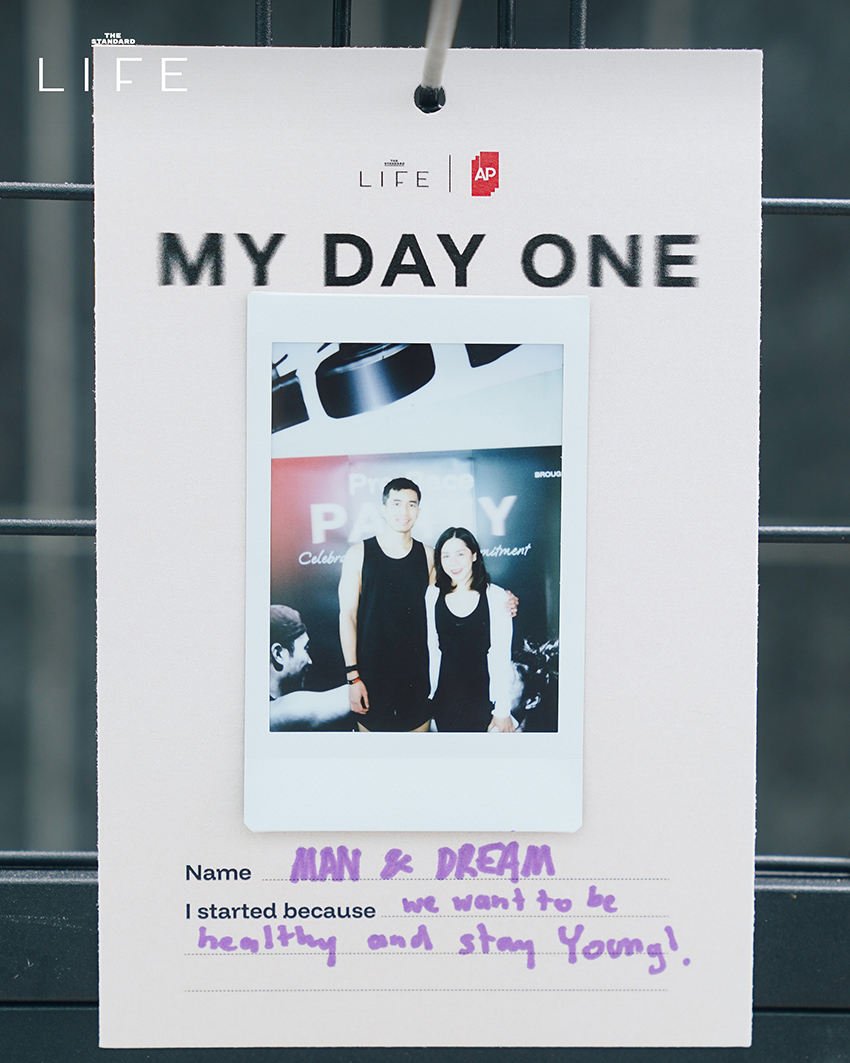 THE
STANDARD
LIFE
THE
STANDARD
LIFE
AP
MY DAY ONE
BROUG
Celebr mitment
Name MAN & DREAM
I started because we want to be
healthy and stay Young!.